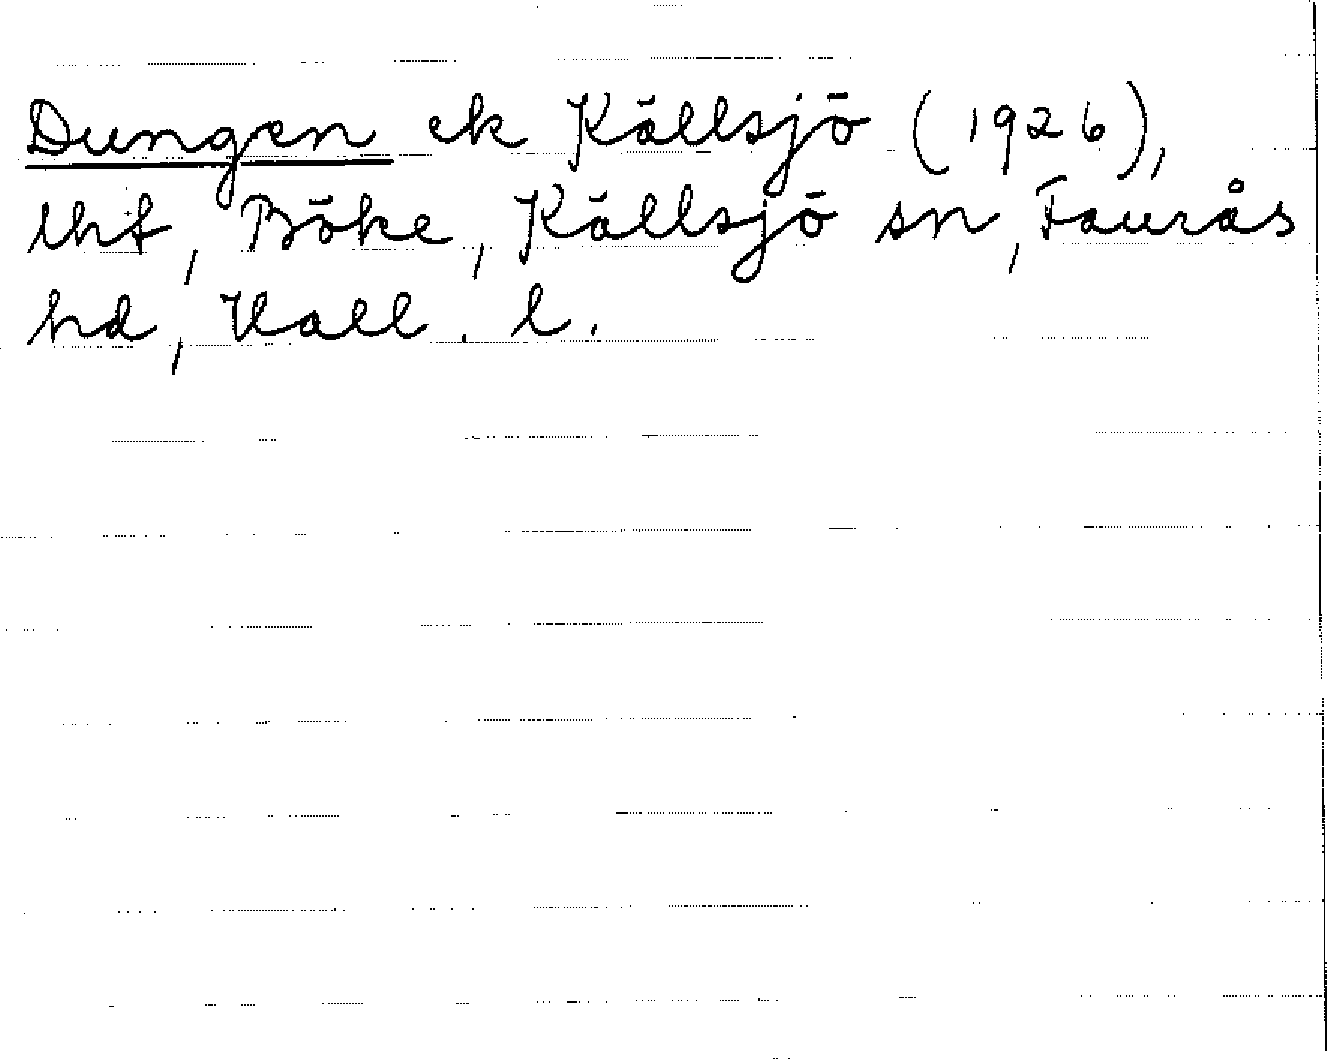 Dungen ek Källsjö (1926),
lht, Böke, Källsjö sn, Faurås
hd, Hall. l.